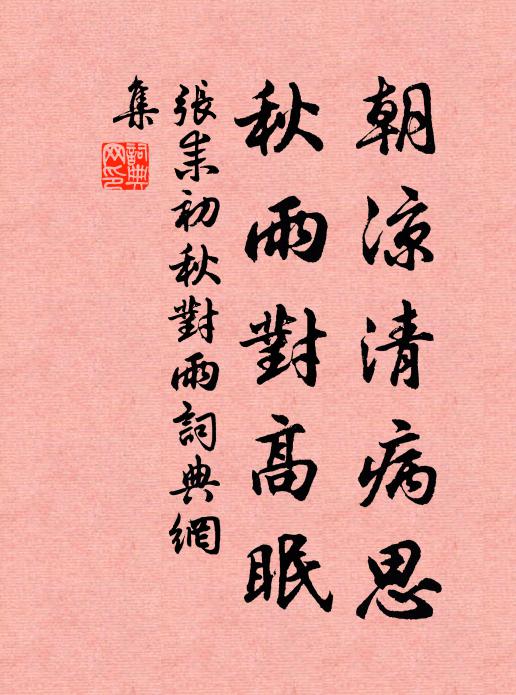 朝涼清病思
秋雨對高眠
張耒初秋對雨詞典網
集
詞典
网印